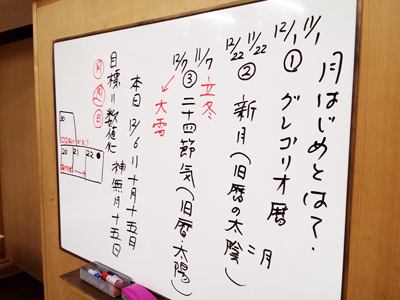 月はじめとは?
11/1
12/1
① グレゴリオ暦
11/22
12/22
② 新月(旧暦の太陰)
=月
11/7
12/7
③ 二十四節気(旧暦・太陽)
立冬
大雪
本日 12/6 = 十月十五日
神無月十五日
目標=数値化
月
日
30
20 21 22